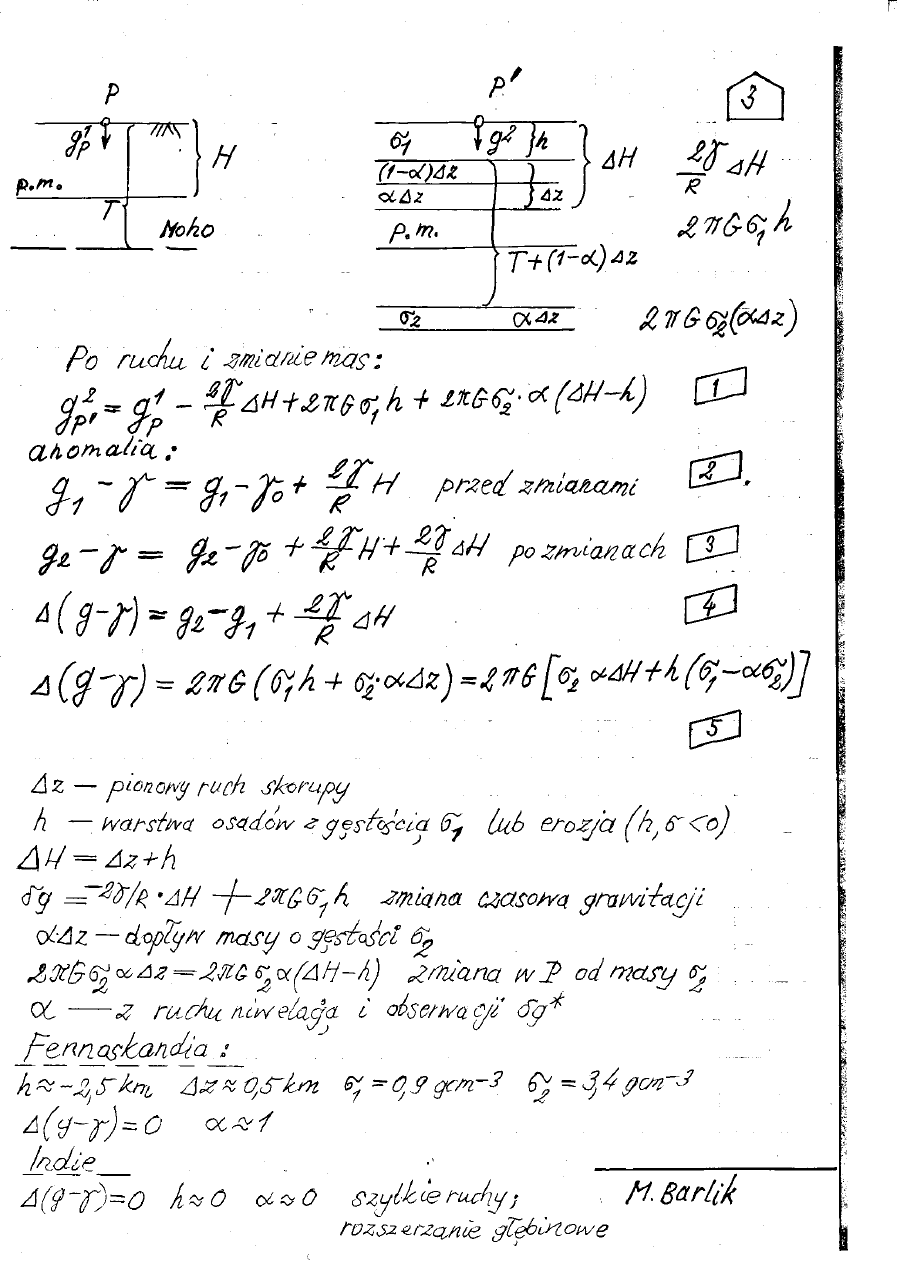 P
g¹P
H
p.m.
T
Moho
P'
σ₁ g² }h
(1-α)Δz
αΔz }Δz
ΔH
p.m.
T+(1-α)Δz
σ₂ αΔz
3
2γ/R ΔH
2πGσ₁h
2πGσ₂(αΔz)
Po ruchu i zmianie mas:
g²P' = g¹P - 2γ/R ΔH+2πGσ₁h + 2πGσ₂·α(ΔH-h) 1
anomalia:
g₁-γ = g₁-γ₀+ 2γ/R H przed zmianami 2.
g₂-γ = g₂-γ₀ + 2γ/R H+ 2γ/R ΔH po zmianach 3
Δ(g-γ) = g₂-g₁ + 2γ/R ΔH 4
Δ(g-γ) = 2πG(σ₁h + σ₂·αΔz) = 2πG[σ₂ αΔH+h(σ₁-ασ₂)]
5
Δz — pionowy ruch skorupy
h — warstwa osadów z gęstością σ₁ lub erozja (h,σ<0)
ΔH = Δz+h
δg = -2γ/R·ΔH + 2πGσ₁h zmiana czasowa grawitacji
α·Δz — dopływ masy o gęstości σ₂
2πGσ₂αΔz = 2πGσ₂α(ΔH-h) zmiana w P od masy σ₂
α — z ruchu niwelacją i obserwacji δg*
Fennoskandia:
h≈-2,5 km Δz≈0,5 km σ₁=0,9 gcm-3 σ₂=3,4 gcm-3
Δ(g-γ)=0 α≈1
Indie
Δ(g-γ)=0 h≈0 α≈0 szybkie ruchy;
rozszerzanie głębinowe
M. Barlik